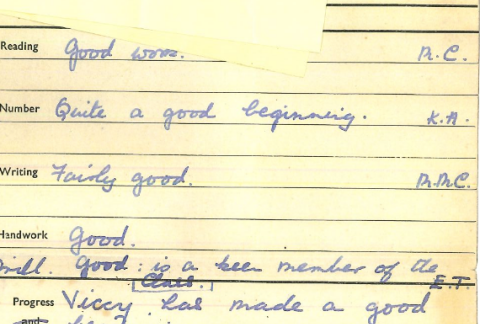 Reading Good work. M.C.
Number Quite a good beginning. K.A.
Writing Fairly good. M.M.C.
Handwork Good.
Drill. Good: is a keen member of the
Class. E.T.
Progress Viccy has made a good
and